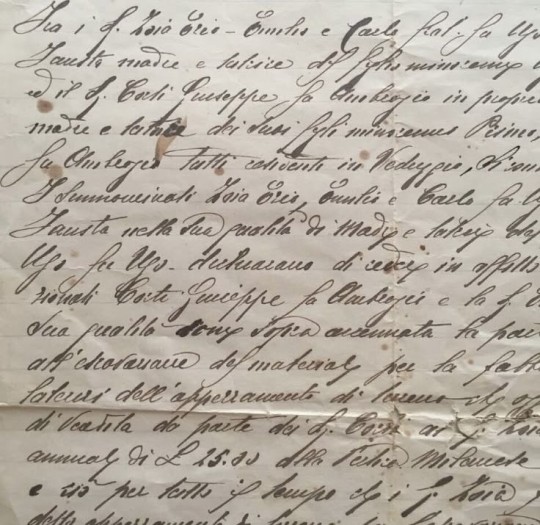 Fra i S. Zoia Ezio - Emilio e Carlo frat. fu Ugo
Fausta madre e tutrice dei figli minorenni
ed il S. Corti Giuseppe fu Ambrogio in propri
madre e tutrice dei suoi figli minorenni Primo,
fu Ambrogio tutti residenti in Vedeggio,
I summenzionati Zoia Ezio, Emilio e Carlo fu U
Fausta nella sua qualità di Madre e tutrice
Ugo fu Ugo - dichiarano di cedere in affitto
zionati Corti Giuseppe fu Ambrogio e la S.
sua qualità come sopra accennata la par
all'escavazione dei materiali per la fabb
laterizi dell'appezzamento di terreno
di vendita da parte dei S. Corti ai S. Zoia
annuali di L 25.30 alla Pertica Milanese
e ciò per tutto il tempo che i S. Zoia
dello appezzamento di terreno